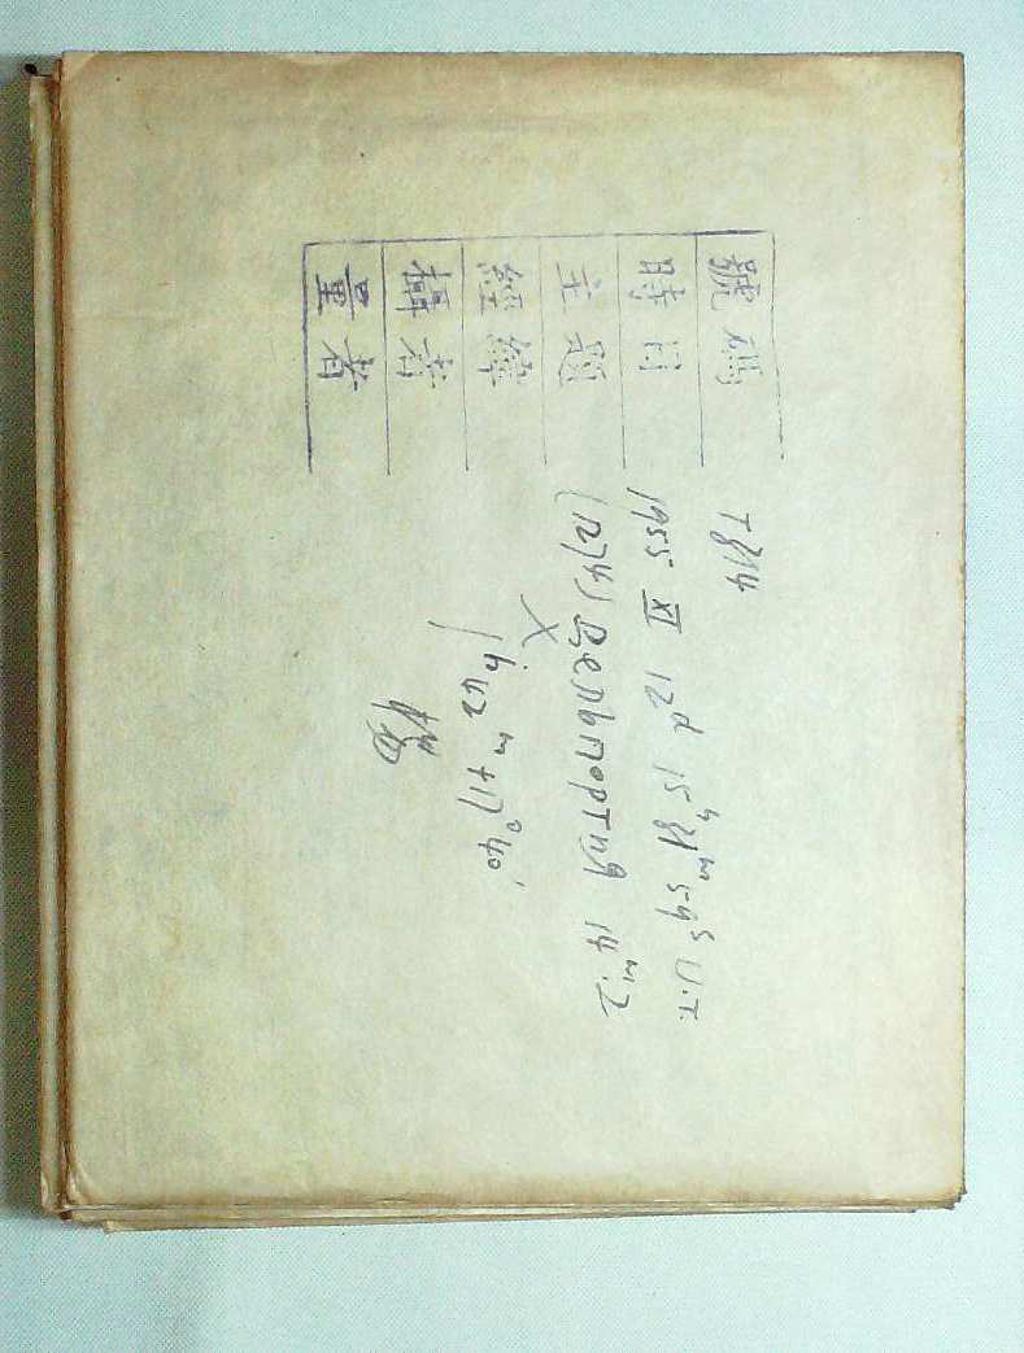 號碼 T814
時日 1955 XI 12ᵈ 15ʰ 18ᵐ 59ˢ U.T.
主題 (1274) Дельпортия 14ᵐ.2
經緯 1ʰ42ᵐ +17°40′
攝者
量者